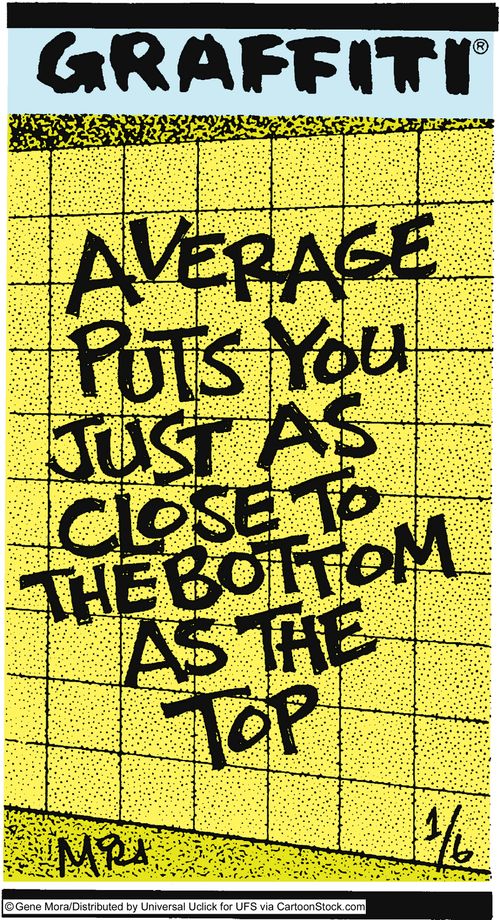 GRAFFITI®
AVERAGE
PUTS YOU
JUST AS
CLOSE TO
THE BOTTOM
AS THE
TOP
MORA
1/6
© Gene Mora/Distributed by Universal Uclick for UFS via CartoonStock.com